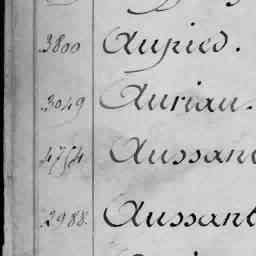 3800 Aupied.
3049 Auriau.
4754 Aussant
2988. Aussant